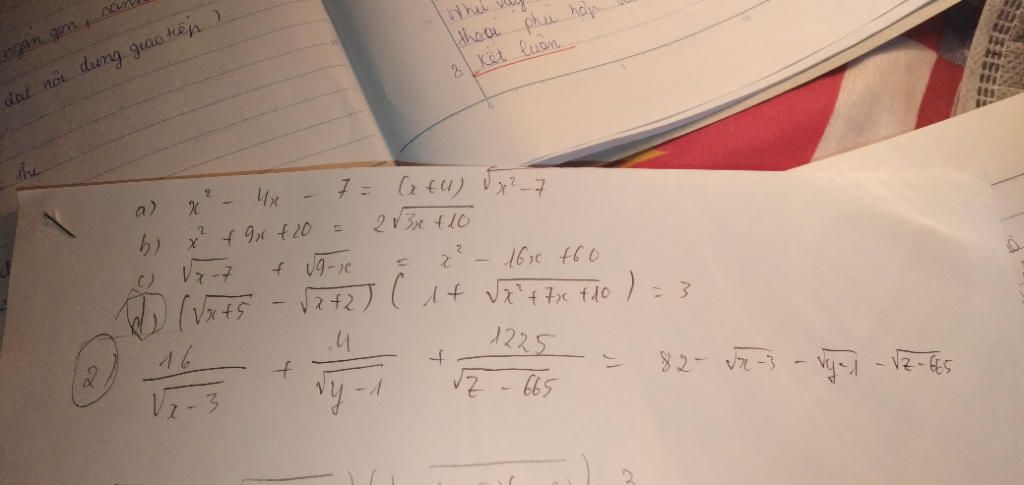 ngắn gọn,
đạt nội dung giao tiếp)
Như vậy
thoại phù hợp
8 Kết luận
a) x² - 4x - 7 = (x+4) √(x²-7)
b) x² + 9x + 20 = 2√(3x+10)
c) √(x-7) + √(9-x) = x² - 16x + 60
d) (√(x+5) - √(x+2)) (1 + √(x²+7x+10)) = 3
2) 16/√(x-3) + 4/√(y-1) + 1225/√(z-665) = 82 - √(x-3) - √(y-1) - √(z-665)